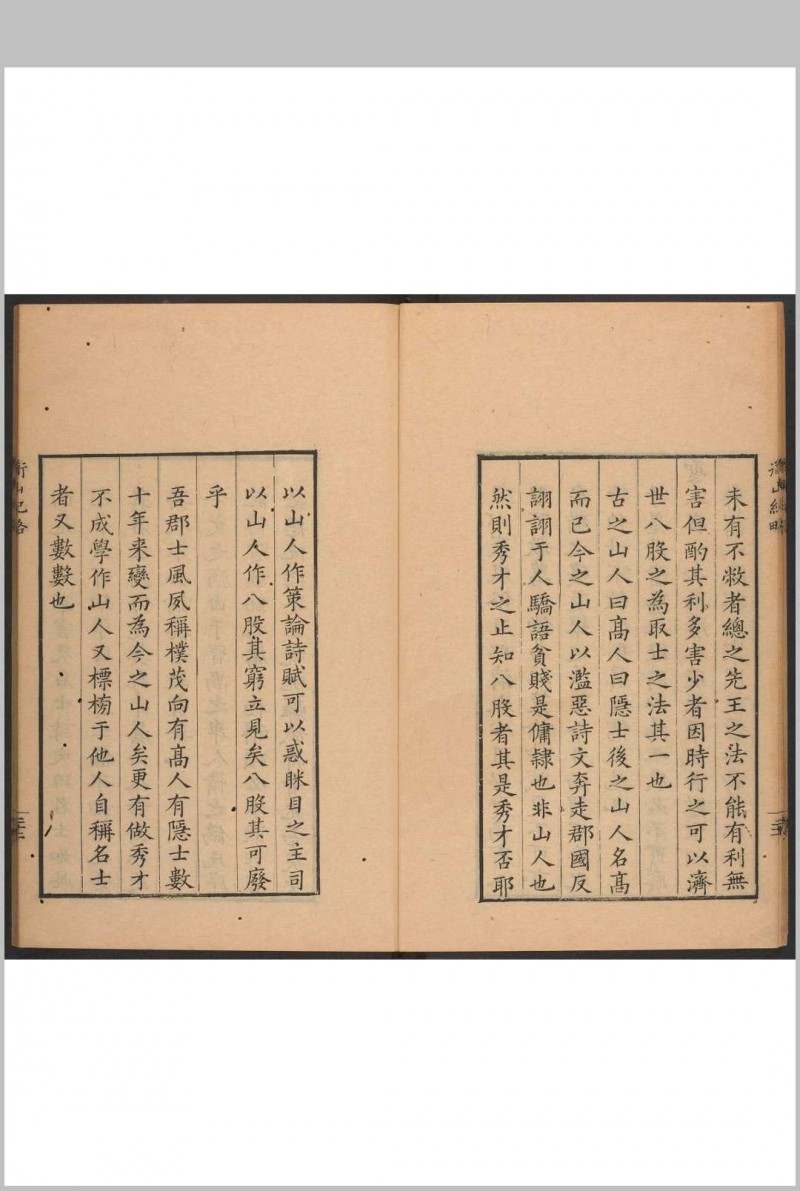 未有不敝者總之先王之法不能有利無
害但酌其利多害少者因時行之可以濟
世八股之為取士之法其一也
古之山人曰髙人曰隱士後之山人名髙
而已今之山人以濫惡詩文奔走郡國反
詡詡于人驕語貧賤是傭隸也非山人也
然則秀才之止知八股者其是秀才否耶
以山人作策論詩賦可以惑眯目之主司
以山人作八股其窮立見矣八股其可廢
乎
吾郡士風夙稱樸茂向有髙人有隱士數
十年来變而為今之山人矣更有做秀才
不成學作山人又標榜于他人自稱名士
者又數數也